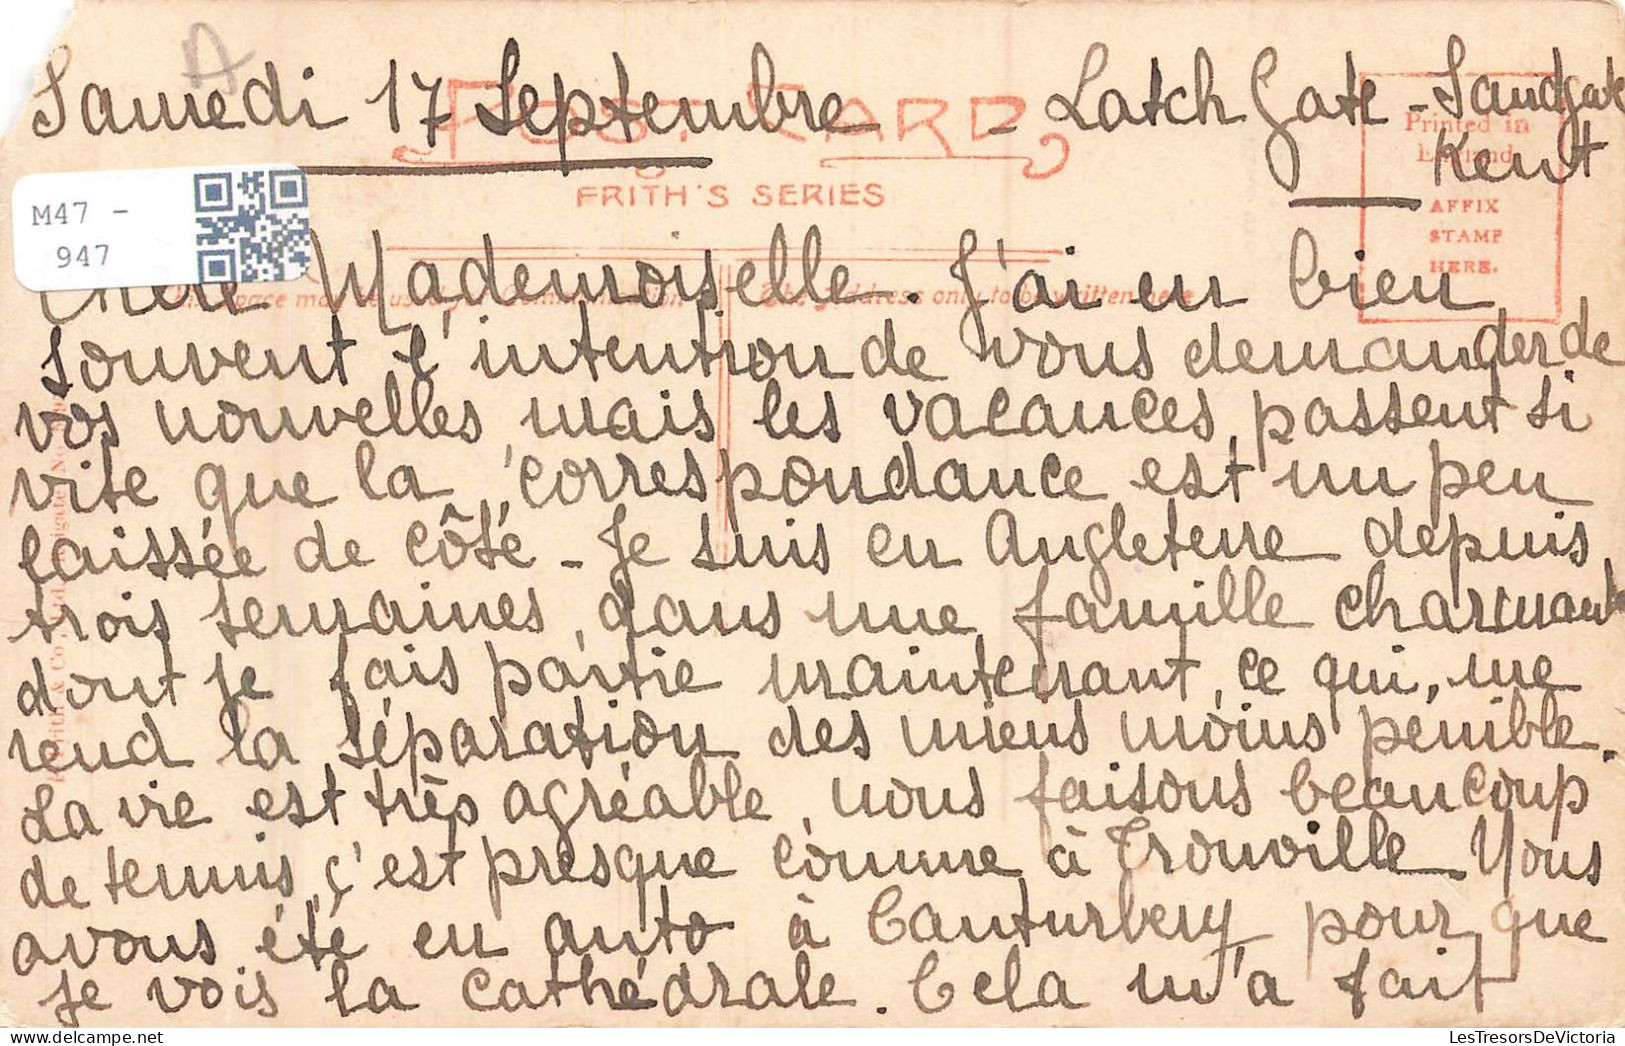 A
Samedi 17 Septembre - Latch Gate - Sandgate
Kent
POST CARD
Printed in
England
FRITH'S SERIES
AFFIX
STAMP
HERE.
M47 -
947
Chère Mademoiselle. J'ai eu bien
souvent l'intention de vous demander de
vos nouvelles, mais les vacances passent si
vite que la correspondance est un peu
laissée de côté - Je suis en Angleterre depuis
trois semaines, dans une famille charmante
dont je fais partie maintenant, ce qui me
rend la séparation des miens moins pénible.
La vie est très agréable, nous faisons beaucoup
de tennis, c'est presque comme à Trouville. Nous
avons été en auto à Canturbery pour que
je vois la cathédrale. Cela m'a fait
LesTresorsDeVictoria.com